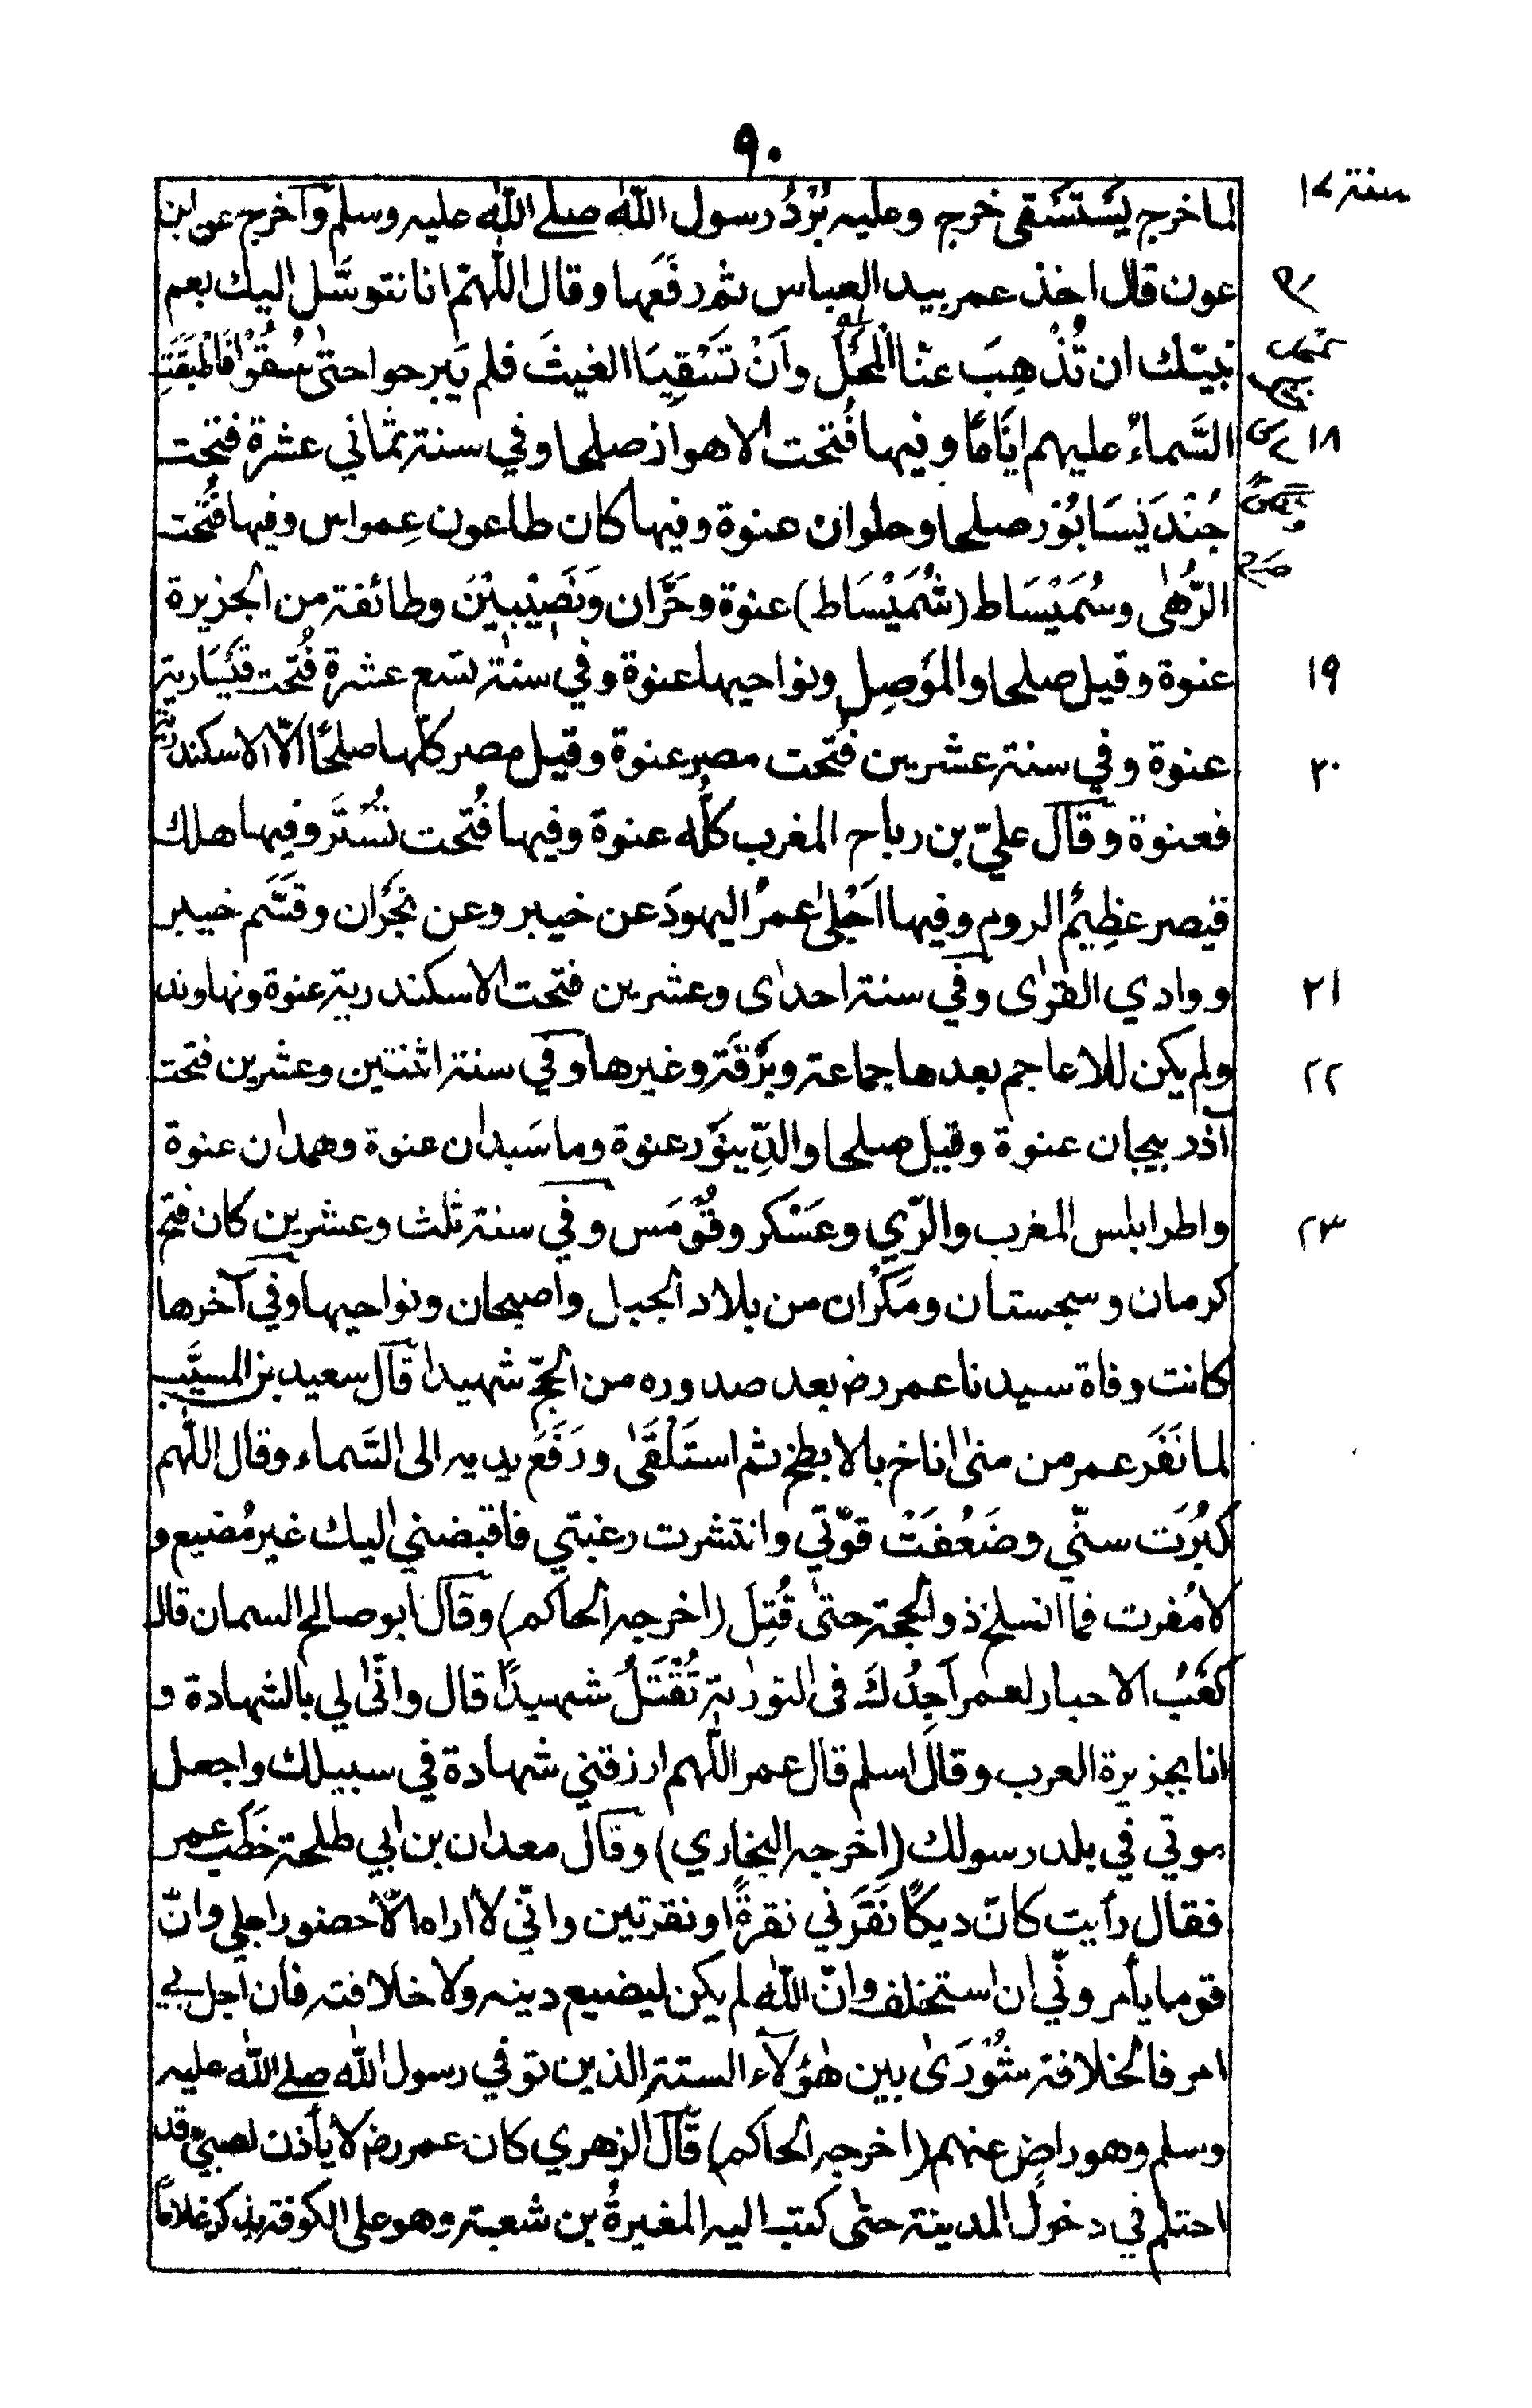 ٩٠
سنة ١٧
لما خرج يَسْتَسْقى خرج وعليه بُرْدُ رسول الله صلى الله عليه وسلم وأخرج عن ابن
عون قال اخذ عمر بيد العباس ثم رفَعَها وقال اللّٰهمّ انا نتوسَّل اليك بعم
نبيّك ان تُذْهِبَ عنّا المَحْلَ واَنْ تَسْقِيَنا الغيثَ فلم يَبرحوا حتىٰ سُقُوْا فَاطْبَقَتِ
السَّماءُ عليهم ايَّامًا وفيها فُتحت الاهواز صلحا وفي سنة ثماني عشرة فتحت
١٨
جُنْدَ يَسَابُوْر صلحا وحلوان عنوة وفيها كان طاعون عِمواس وفيها فُتحت
الرُّهٰى وسُمَيْسَاط (شُمَيْسَاط) عنوة وحَرَّان ونَصِيْبِيْنَ وطائفة من الجزيرة
عنوة وقيل صلحا والمَوصِل ونواحيها عنوة وفي سنة تسع عشرة فُتحت قَيْسَارية
١٩
عنوة وفي سنة عشرين فُتحت مصر عنوة وقيل مصر كلّها صلحًا الّا الاسكندرية
٢٠
فعنوة وقال عليّ بن رباح المغرب كلُّه عنوة وفيها فُتحت تُسْتَر وفيها هلك
قيصر عظِيْمُ الروم وفيها اَجْلىٰ عمرُ اليهودَ عن خيبر وعن نَجْرَان وقسَّم خيبر
ووادي القرىٰ وفي سنة احدىٰ وعشرين فتحت الاسكندرية عنوة ونهاوند
٢١
ولم يكن للاعاجم بعدها جماعة وبَرْقَة وغيرها وفي سنة اثنتين وعشرين فتحت
٢٢
آذربيجان عنوة وقيل صلحا والدِّيْنَوَر عنوة وماسَبَذان عنوة وهمدان عنوة
واطرابلس المغرب والرّي وعَسْكَر وقُوْمَس وفي سنة ثلث وعشرين كان فتح
٢٣
كرمان وسجستان ومَكْرَان من بلاد الجبل واصبهان ونواحيها وفي آخرها
كانت وفاة سيدنا عمر رض بعد صدوره من الحجّ شهيدا قال سعيد بن المسيَّب
لما نَفَر عمر من منىٰ اناخ بالابطح ثم استَلْقَىٰ ورَفَعَ يديه الى السَّماء وقال اللّٰهم
كبُرَت سنّي وضَعُفَتْ قوّتي وانتشرت رغبتي فاقبضني اليك غير مُضيع و
لا مُفرت فما انسلخ ذو الحجة حتىٰ قُتِلَ (اخرجه الحاكم) وقال ابو صالح السمان قال
كَعْبُ الاحبار لعمر اَجِدُكَ فى التورٰية تُقْتَلُ شهيدًا قال وانّٰى لي بالشهادة و
انا بجزيرة العرب وقال اسلم قال عمر اللّٰهم ارزقني شهادة في سبيلك واجعل
موتي في بلد رسولك (اخرجه البخاري) وقال معدان بن ابي طلحة خَطَب عمر
فقال رأيت كانّ ديكًا نَقَرَني نقرةً او نقرتين وانّي لا اراه الّا حضور اجلي وانّ
قوما يأمرونّي ان استخلف وانّ الله لم يكن ليضيع دينه ولا خلافته فان عجل بي
امر فالخلافة شُوْرىٰ بين هٰؤلآء الستة الذين توفي رسول الله صلى الله عليه
وسلم وهو راضٍ عنهم (اخرجه الحاكم) قال الزهري كان عمر رض لا يأذن لصبيّ قد
احتلم في دخول المدينة حتى كتب اليه المغيرةُ بن شعبة وهو على الكوفة يذكر غلامًا